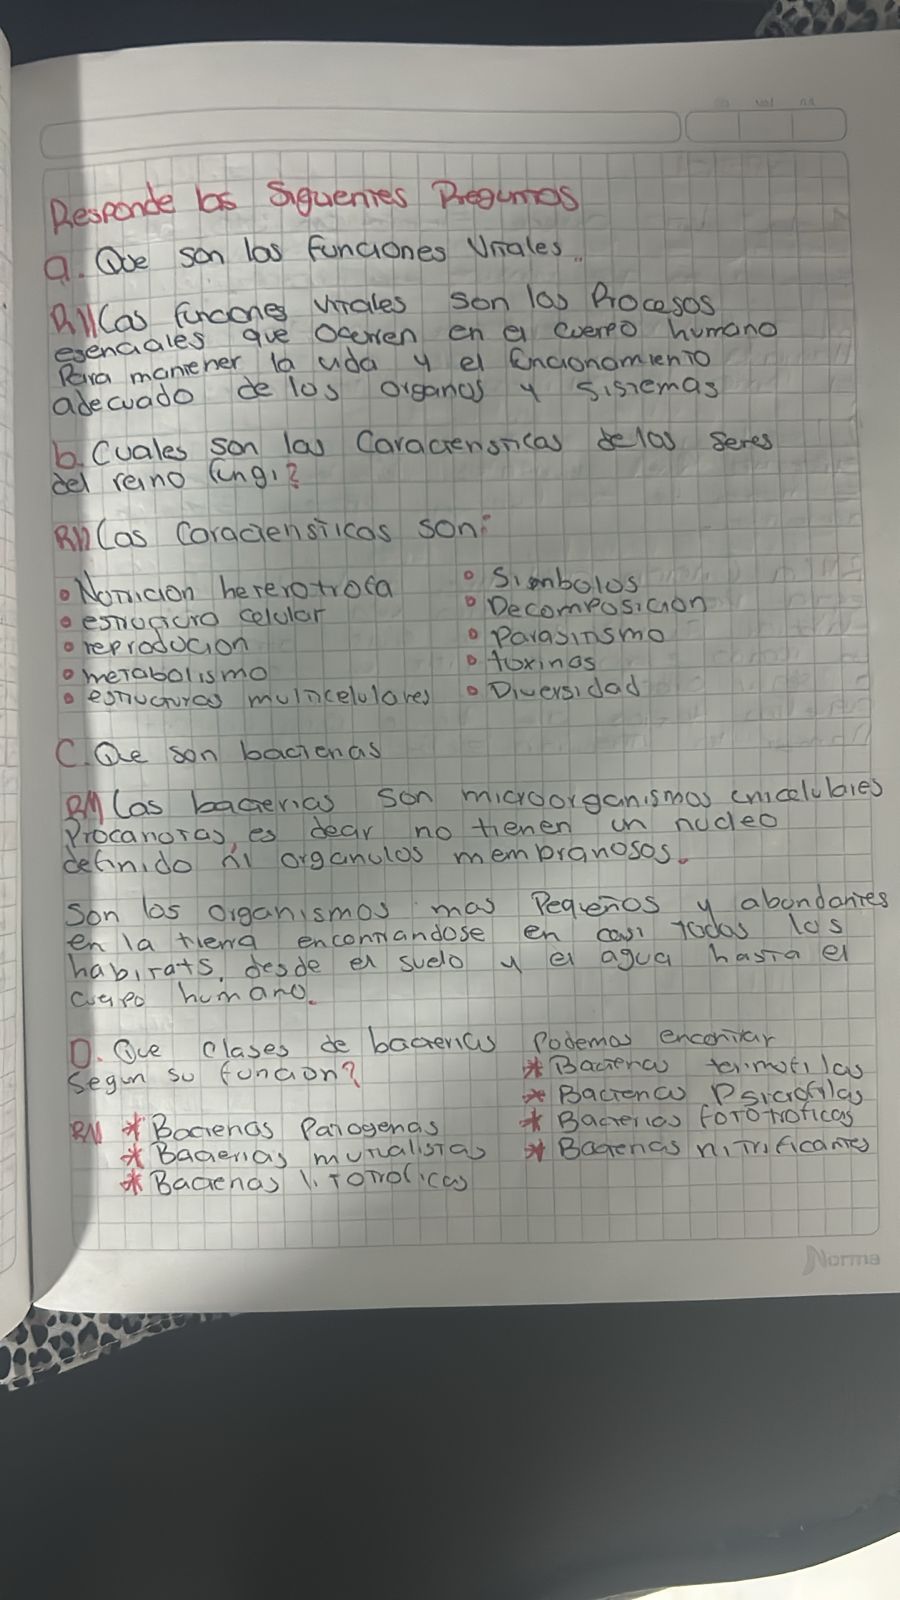 Responde las Siguientes Preguntas
a. Que son las funciones Vitales.
R// Las funciones vitales son los Procesos
esenciales que ocurren en el cuerpo humano
Para mantener la vida y el funcionamiento
adecuado de los organos y sistemas
b. Cuales son las Caracteristicas de los seres
del reino fungi?
R// Las Caracteristicas son:
• Nutricion heterotrofa
• estructura celular
• reproducion
• metabolismo
• estructuras multicelulares
• Simbolos
• Decomposicion
• Parasitismo
• toxinas
• Diversidad
C. Que son bacterias
R// Las bacterias son microorganismos unicelulares
Procariotas, es decir no tienen un nucleo
definido ni organulos membranosos.
Son los organismos mas Pequeños y abundantes
en la tierra encontrandose en casi todos los
habitats, desde el suelo y el agua hasta el
cuerpo humano.
D. Que clases de bacterias Podemos encontrar
Segun su funcion?
R// * Bacterias Patogenas
* Bacterias mutualistas
* Bacterias litotroficas
* Bacterias termofilas
* Bacterias Psicrofilas
* Bacterias fototroficas
* Bacterias nitrificantes
Norma